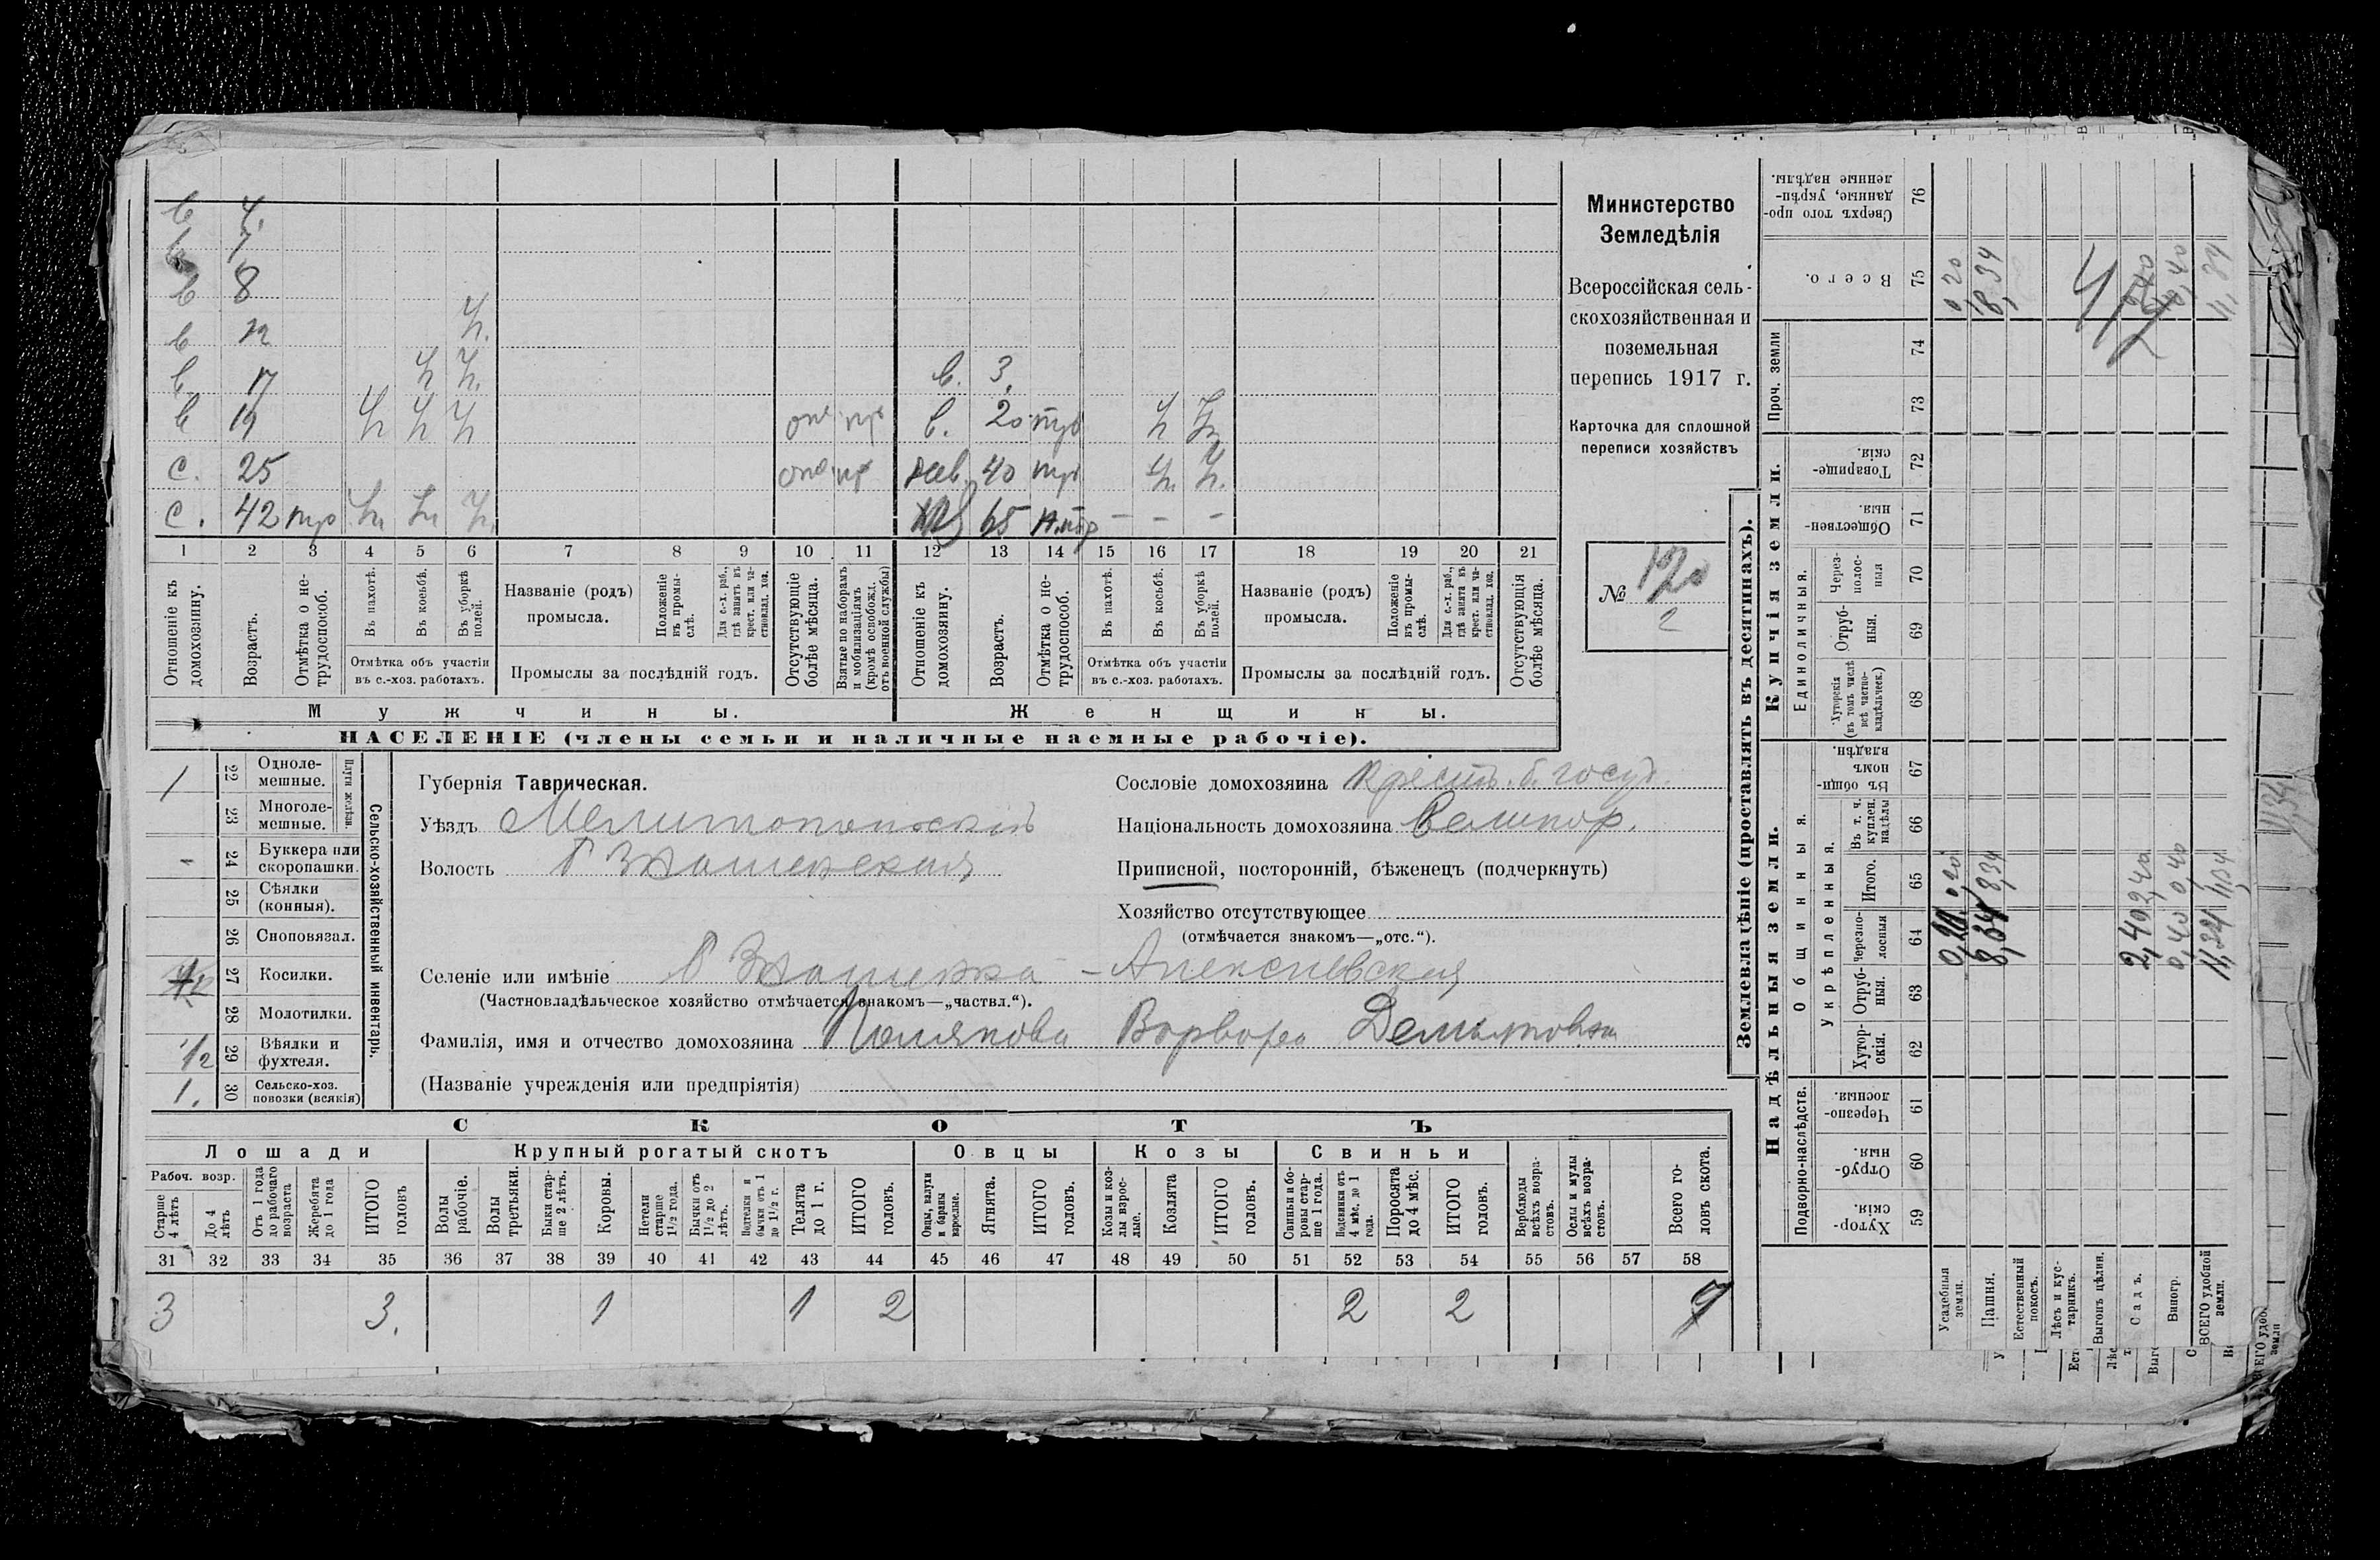 в 4.
в 7
в 8
в 12 Ч.
в 17 Ч Ч. в. 3.
в 19 Ч Ч Ч в. 20 тр Ч Ч
с. 25 нев. 40 тр Ч. Ч.
с. 42 тр Ч Ч Ч. 65 н.тр - - -
1 2 3 4 5 6 7 8 9 10 11 12 13 14 15 16 17 18 19 20 21
Отношеніе къ домохозяину.
Возрастъ.
Отмѣтка о не-трудоспособ.
Въ пахотѣ.
Въ косьбѣ.
Въ уборкѣ полей.
Отмѣтка объ участіи
въ с.-хоз. работахъ.
Названіе (родъ)
промысла.
Положеніе въ промы-слѣ.
Для с.-х. раб., гдѣ занятъ въ крест. или ча-стновлад. хоз.
Промыслы за послѣдній годъ.
Отсутствующіе болѣе мѣсяца.
Взятые по наборамъ и мобилизаціямъ (кромѣ освобожд. отъ военной службы)
Отношеніе къ домохозяину.
Возрастъ.
Отмѣтка о не-трудоспособ.
Въ пахотѣ.
Въ косьбѣ.
Въ уборкѣ полей.
Отмѣтка объ участіи
въ с.-хоз. работахъ.
Названіе (родъ)
промысла.
Положеніе въ промы-слѣ.
Для с.-х. раб., гдѣ занята въ крест. или ча-стновлад. хоз.
Промыслы за послѣдній годъ.
Отсутствующія болѣе мѣсяца.
Мужчины. Женщины.
НАСЕЛЕНІЕ (члены семьи и наличные наемные рабочіе).
Министерство
Земледѣлія
Всероссійская сель-
скохозяйственная и
поземельная
перепись 1917 г.
Карточка для сплошной
переписи хозяйствъ
№ 120
2
Сельско-хозяйственный инвентарь.
Плуги желѣзн.
1 22 Однолемешные.
23 Многолемешные.
- 24 Буккера или скоропашки.
25 Сѣялки (конныя).
26 Сноповязал.
27 Косилки.
28 Молотилки.
1/2 29 Вѣялки и фухтеля.
1. 30 Сельско-хоз. повозки (всякія)
Губернія Таврическая.
Уѣздъ Мелитопольскій
Волость Б Знаменская
Сословіе домохозяина Крест. б. госуд.
Національность домохозяина Великор.
Приписной, посторонній, бѣженецъ (подчеркнуть)
Хозяйство отсутствующее
(отмѣчается знакомъ—„отс.“).
Селеніе или имѣніе Б Знаменка - Алексіевская
(Частновладѣльческое хозяйство отмѣчается знакомъ—„частвл.“).
Фамилія, имя и отчество домохозяина Полякова Варвара
(Названіе учрежденія или предпріятія)
СКОТЪ
Лошади Крупный рогатый скотъ Овцы Козы Свиньи
Рабоч. возр.
Старше 4 лѣтъ
До 4 лѣтъ
Отъ 1 года до рабочаго возраста
Жеребята до 1 года
ИТОГО головъ
Волы рабочіе.
Волы третьяки.
Быки стар-ше 2 лѣтъ.
Коровы.
Нетели старше 1½ года.
Бычки отъ 1½ до 2 лѣтъ.
Подтелки и бычки отъ 1 до 1½ г.
Телята до 1 г.
ИТОГО головъ.
Овцы, валухи и бараны взрослые.
Ягнята.
ИТОГО головъ.
Козы и коз-лы взрос-лые.
Козлята
ИТОГО головъ.
Свиньи и бо-ровы стар-ше 1 года.
Подсвинки отъ 4 мѣс. до 1 года.
Поросята до 4 мѣс.
ИТОГО головъ.
Верблюды всѣхъ возра-стовъ.
Ослы и мулы всѣхъ возра-стовъ.
Всего го-ловъ скота.
31 32 33 34 35 36 37 38 39 40 41 42 43 44 45 46 47 48 49 50 51 52 53 54 55 56 57 58
3 3. 1 1 2 2 2 7
Землевладѣніе (проставлять въ десятинахъ).
Надѣльныя земли. Купчія земли. Проч. земли
Подворно-наслѣдств.
Общинныя.
Укрѣпленныя.
Единоличныя.
Хутор-скія. 59
Отруб-ныя. 60
Черезпо-лосныя. 61
Хутор-скія. 62
Отруб-ныя. 63
Черезпо-лосныя 64
Итого. 65
Въ т. ч. куплен. надѣлы 66
Въ общи-номъ владѣн. 67
Хуторскія (въ томъ числѣ всѣ частно-владѣльческ.) 68
Отруб-ныя. 69
Через-полос-ныя 70
Обществен-ныя. 71
Товарище-скія. 72
73
74
Всего. 75
Сверхъ того про-данные, укрѣп-ленные надѣлы. 76
Усадебныя земли. 0,20 0,20 0,20
Пашня. 8,34 8,34 8,34
Естественный покосъ.
Лѣсъ и кус-тарникъ.
Выгонъ цѣлин.
Садъ. 2,40 2,40 2,40
Виногр. 0,40 0,40 0,40
ВСЕГО удобной земли. 11,34 11,34